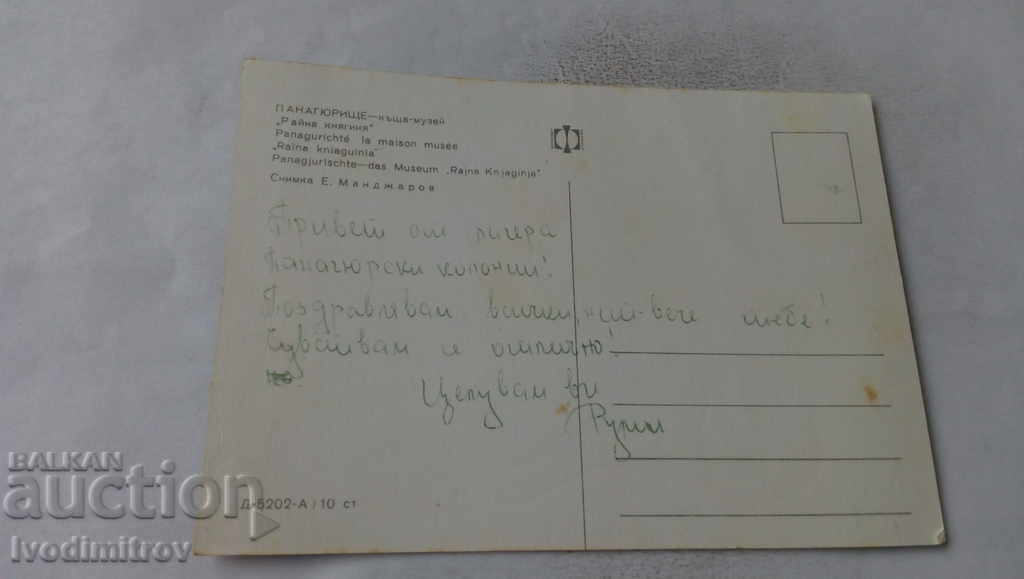 ПАНАГЮРИЩЕ—къща-музей
„Райна княгиня"
Panagurichté la maison musée
„Raïna kniaguinia"
Panagjurischte—das Museum „Rajna Knjaginja"
Снимка Е. Манджаров
Привет от лагера
Панагюрски колонии!
Поздравявам всички, най-вече тебе!
Чувствам се отлично!
Целувам ви
Румен
Д-5202-А / 10 ст
BALKAN
auction
Ivodimitrov